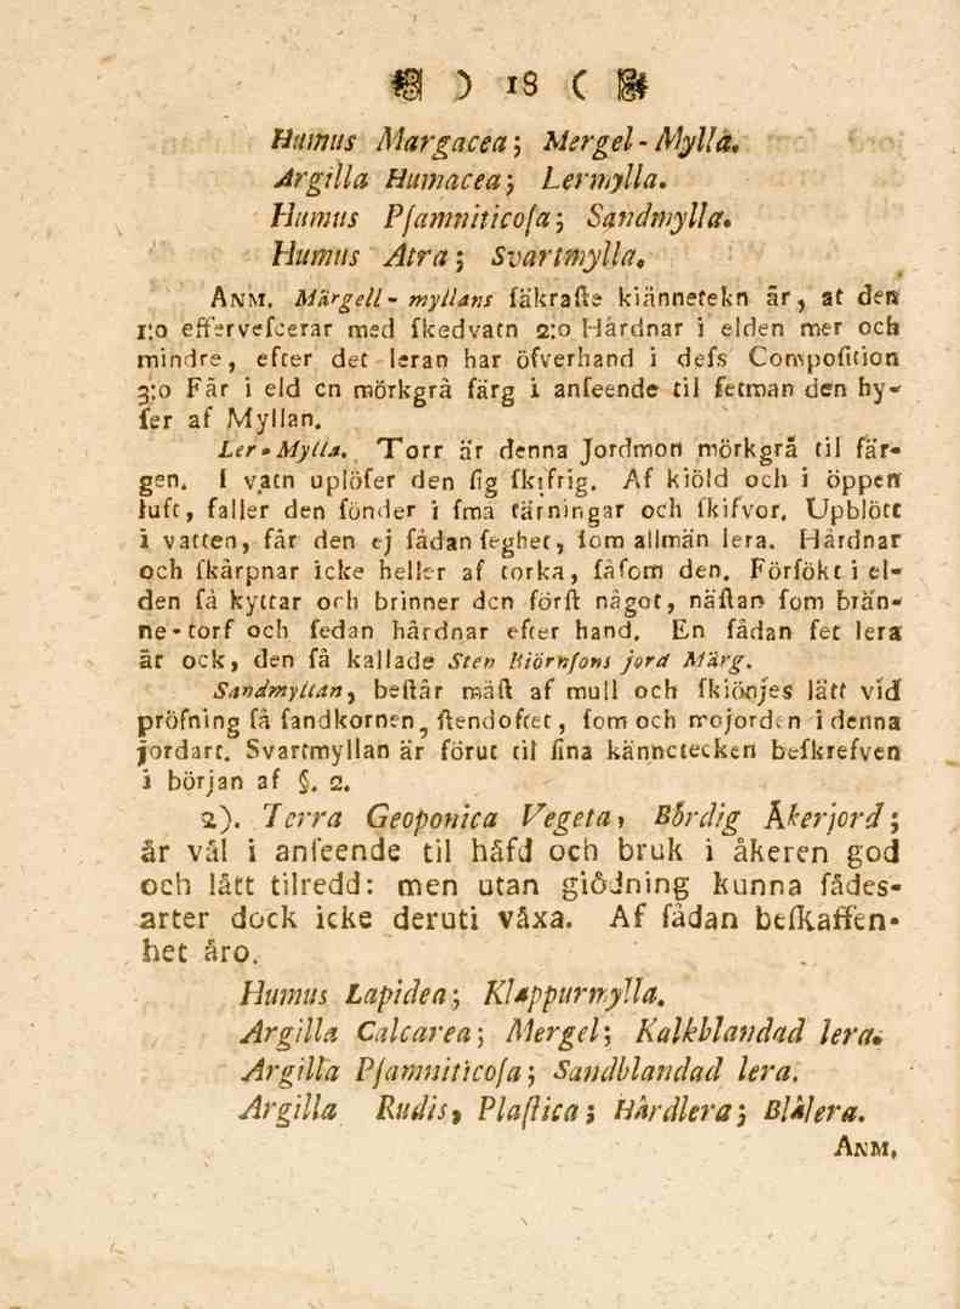 ) 18 (
Humus Margacea; Mergel-Mylla.
Argilla Humacea; Lermylla.
Humus Pſamniticoſa; Sandmylla.
Humus Atra; Svartmylla.
ANM. Märgell-myllans ſäkraſte kiännetekn är, at den
1:o efferveſcerar med ſkedvatn 2:o Hårdnar i elden mer och
mindre, efter det leran har öfverhand i deſs Compoſition
3:o Får i eld en mörkgrå färg i anſeende til fetman den hy-
ſer af Myllan.
Ler-Mylla. Torr är denna Jordmon mörkgrå til fär-
gen. I vatn uplöſer den ſig ſkifrig. Af kiöld och i öppen
luft, faller den ſönder i ſmå tärningar och ſkifvor. Upblött
i vatten, får den ej ſådan ſeghet, ſom allmän lera. Hårdnar
och ſkårpnar icke heller af torka, ſåſom den. Förſökt i el-
den få kyttar och brinner den förſt något, näſtan ſom brän-
ne-torf och ſedan hårdnar efter hand. En ſådan fet lera
är ock, den få kallade Sten Biörnſons jord Märg.
Sandmyllan, beſtår mäſt af mull och ſkiönjes lätt vid
pröfning få ſandkornen, ſtendoftet, ſom och mojorden i denna
jordart. Svartmyllan är förut til ſina kännetecken beſkrefven
i början af §. 2.
2). Terra Geoponica Vegeta, Bördig Åkerjord;
är väl i anſeende til häfd och bruk i åkeren god
och lätt tilredd: men utan giödning kunna ſådes-
arter dock icke deruti växa. Af ſådan beſkaffen-
het äro.
Humus Lapidea; Klappurmylla.
Argilla Calcarea; Mergel; Kalkblandad lera.
Argilla Pſamniticoſa; Sandblandad lera.
Argilla Rudis, Plaſtica; Hårdlera; Blålera.
ANM,